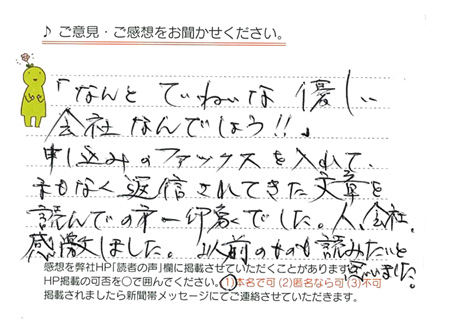 ♪ ご意見・ご感想をお聞かせください。
「なんと ていねいな 優しい
会社 なんでしょう!!」
申し込みのファックスを入れて、
まもなく返信されてきた文章を
読んでの第一印象でした。人、会社、
感激しました。以前のものも読みたいと
思いました。
感想を弊社HP「読者の声」欄に掲載させていただくことがあります。
HP掲載の可否を○で囲んでください。(1)本名で可 (2)匿名なら可 (3)不可
掲載されましたら新聞帯メッセージにてご連絡させていただきます。